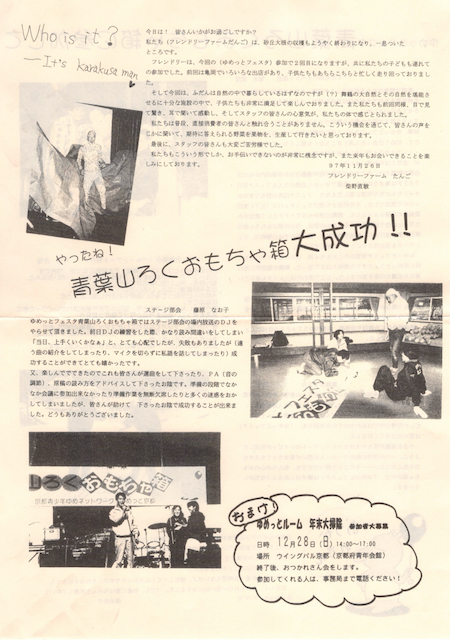 Who is it?
—It's karakusa man
今日は！．皆さんいかがお過ごしですか？
私たち（フレンドリーファームだんご）は、砂丘大根の収穫もようやく終わりになり、一息ついた
ところです。
フレンドリーは、今回の（ゆめっとフェスタ）参加で２回目になりますが、共に私たちの子ども連れで
の参加でした。前回は亀岡でいろいろな出店があり、子供たちもあちらこちらと忙しく走り回っておりまし
た。
そして今回は、ふだんは自然の中で暮らしているはずなのですが（？）舞鶴の大自然とその自然を堪能さ
せるに十分な施設の中で、子供たちも非常に満足して楽しんでおりました。また私たちも前回同様、目で見
て驚き、耳で聞いて感動し、そしてスタッフの皆さんの心意気が、私たちの体で感じとられました。
私たちは普段、直接供費者の皆さんと触れ合うことがありません。こういう機会を通じて、皆さんの声を
じかに聞いて、期待に答えられる野菜を果物を、生産して行きたいと思っております。
最後に、スタッフの皆さんも大変ご苦労様でした。
私たちもこういう形でしか、お手伝いできないのが非常に残念ですが、また来年もお会いできることを楽
しみにしております。
９７年１１月２６日
フレンドリーファーム　たんご
柴野直敏
やったね！
青葉山ろくおもちゃ箱大成功!!
ステージ部会　藤原　なお子
ゆめっとフェスタ青葉山ろくおもちゃ箱ではステージ部会の場内放送のＤＪを
やらせて頂きました。前日ＤＪの練習をした際、かなり読み間違いをしてしまい
「当日、上手くいくかなぁ」と、とても心配でしたが、失敗もありましたが（違
う曲の紹介をしてしまったり、マイクを切らずに私語を話してしまったり）成
功することができてとても嬉かったです。
又、楽しんでできたのでこれも皆さんが選曲をして下さったり、ＰＡ（音の
調節）、原稿の読み方をアドバイスして下さったお陰です。準備の段階でなか
なか会議に参加出来なかったり準備作業を無断欠席したりと多くの迷惑をおか
けしてしまいましたが、皆さんが助けて　下さったお陰で成功することが出来ま
した。どうもありがとうございました。
山ろくおもちゃ箱
京都青少年ゆめネットワーク
おまけ！
ゆめっとルーム　年末大掃除　参加者大募集
日時　12月28日（日）14:00〜17:00
場所　ウイングパル京都（京都府青年会館）
終了後、おつかれさん会をします。
参加してくれる人は、事務局まで電話ください！